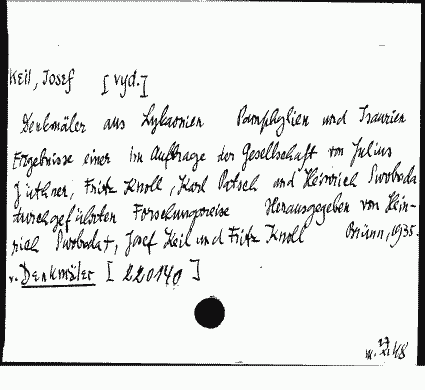 Keil, Josef [vyd.]
Denkmäler aus Lykaonien Pamphylien und Isaurien
Ergebnisse einer im Auftrage der Gesellschaft von Julius
Jüthner, Fritz Knoll, Karl Patsch und Heinrich Swoboda
durchgeführten Forschungsreise Herausgegeben von Hein-
rich Swoboda†, Josef Keil und Fritz Knoll Brünn, 1935.
v. Denkmäler [220140]